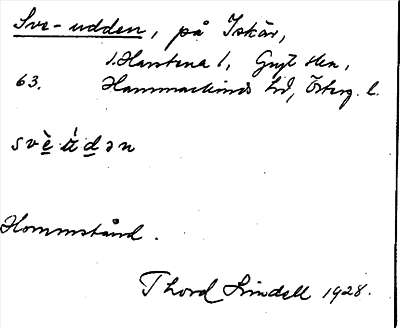 Sve-udden, på Iskär,
S. Harstena 1, Gryt sn,
63. Hammarkinds hd, Österg. l.
svè ú dən
Hommstånd.
Thord Lindell 1928.